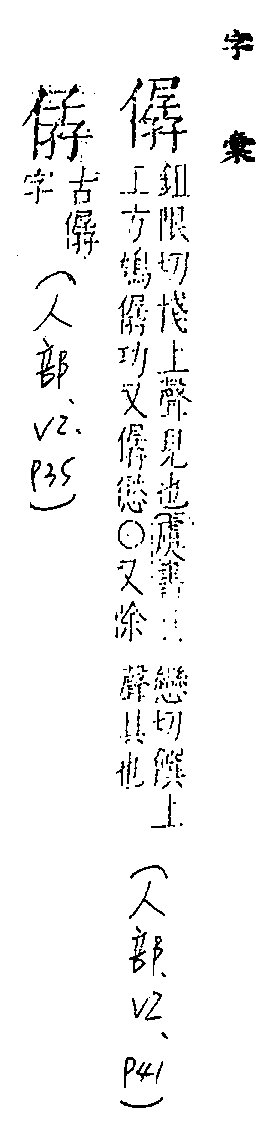 字彙
僝
鉏限切棧上聲見也虞書共
工方鳩僝功又僝僽○又除
戀切饌上
聲具也
(人部、V2、P41)
古僝
字
(人部、V2、P35)